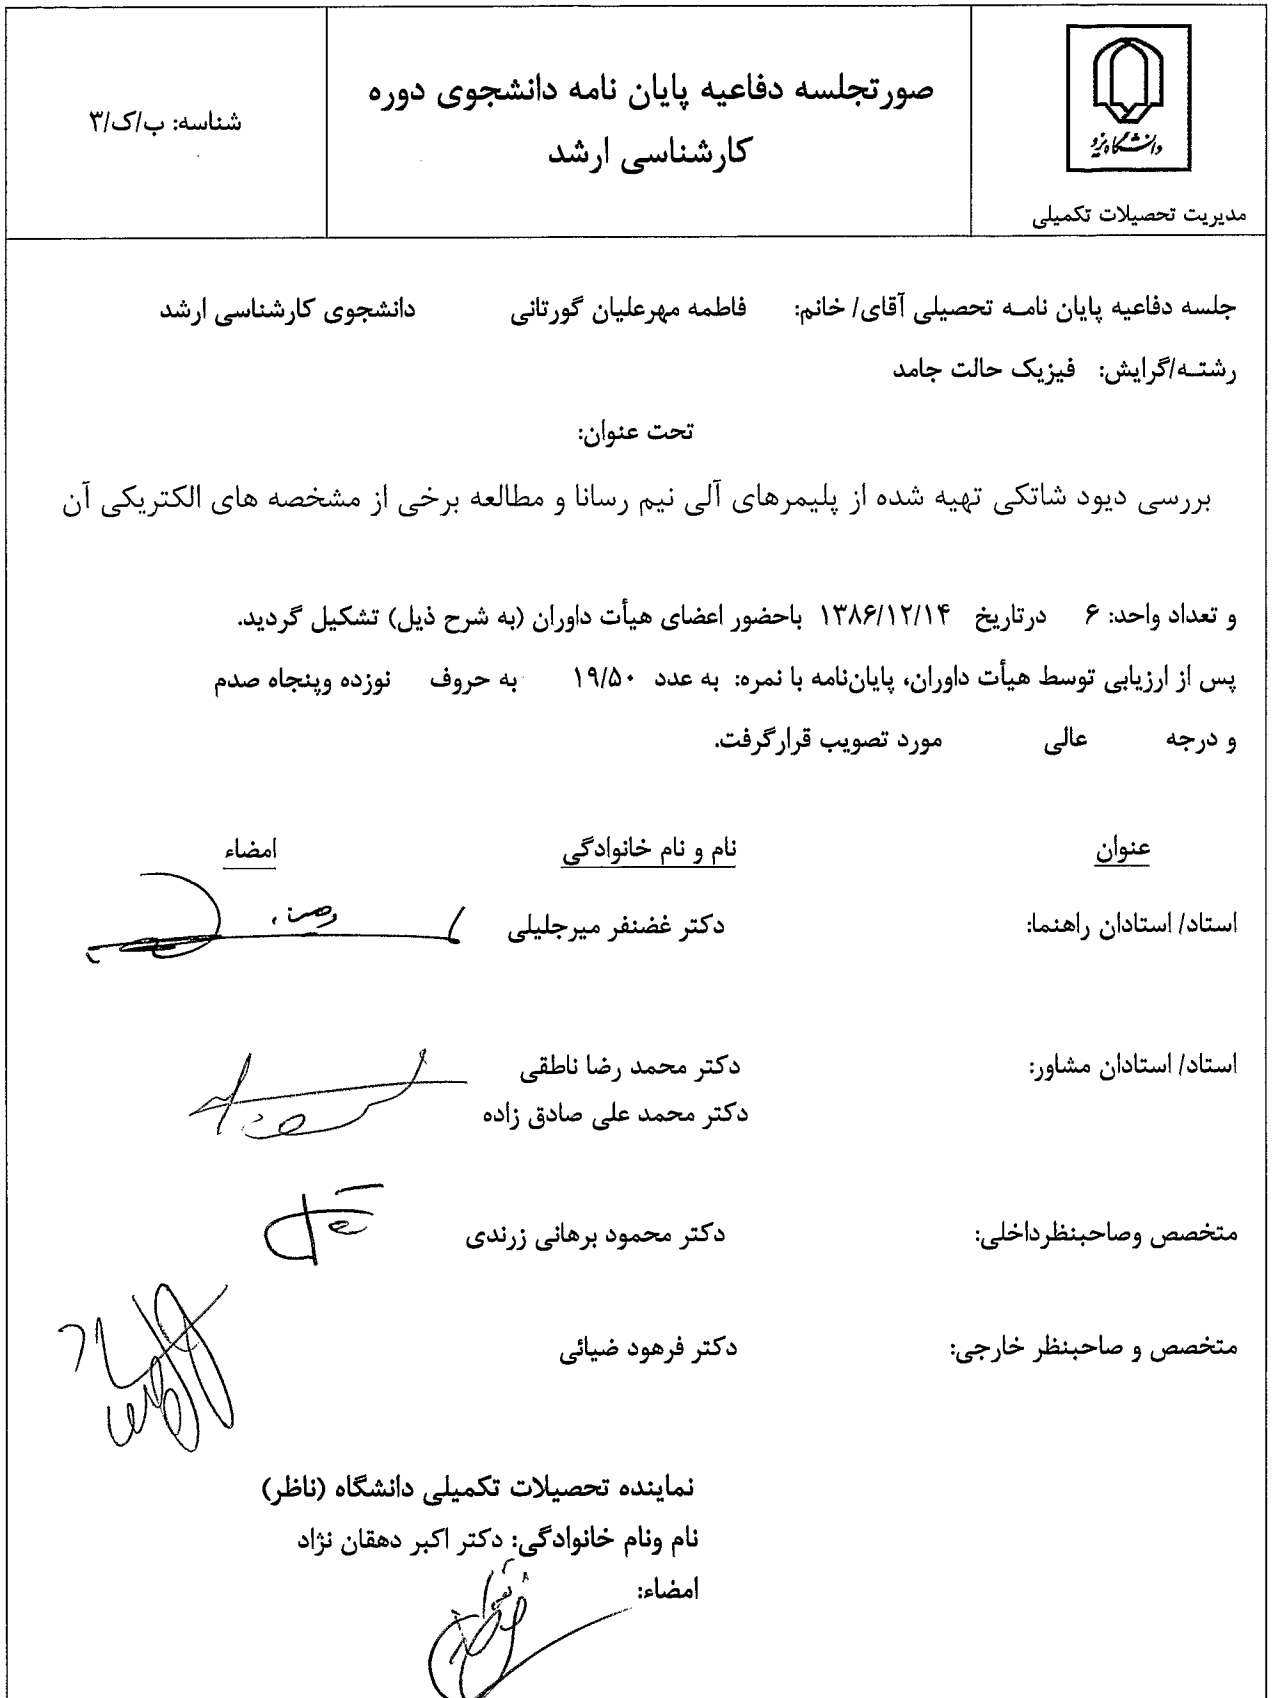 دانشگاه یزد
مدیریت تحصیلات تکمیلی
صورتجلسه دفاعیه پایان نامه دانشجوی دوره
کارشناسی ارشد
شناسه: ب/ک/۳
جلسه دفاعیه پایان نامـه تحصیلی آقای/ خانم: فاطمه مهرعلیان گورتانی دانشجوی کارشناسی ارشد
رشتـه/گرایش: فیزیک حالت جامد
تحت عنوان:
بررسی دیود شاتکی تهیه شده از پلیمرهای آلی نیم رسانا و مطالعه برخی از مشخصه های الکتریکی آن
و تعداد واحد: ۶ درتاریخ ۱۳۸۶/۱۲/۱۴ باحضور اعضای هیأت داوران (به شرح ذیل) تشکیل گردید.
پس از ارزیابی توسط هیأت داوران، پایان‌نامه با نمره: به عدد ۱۹/۵۰ به حروف نوزده وپنجاه صدم
و درجه عالی مورد تصویب قرارگرفت.
عنوان نام و نام خانوادگی امضاء
استاد/ استادان راهنما: دکتر غضنفر میرجلیلی
استاد/ استادان مشاور: دکتر محمد رضا ناطقی
دکتر محمد علی صادق زاده
متخصص وصاحبنظرداخلی: دکتر محمود برهانی زرندی
متخصص و صاحبنظر خارجی: دکتر فرهود ضیائی
نماینده تحصیلات تکمیلی دانشگاه (ناظر)
نام ونام خانوادگی: دکتر اکبر دهقان نژاد
امضاء: